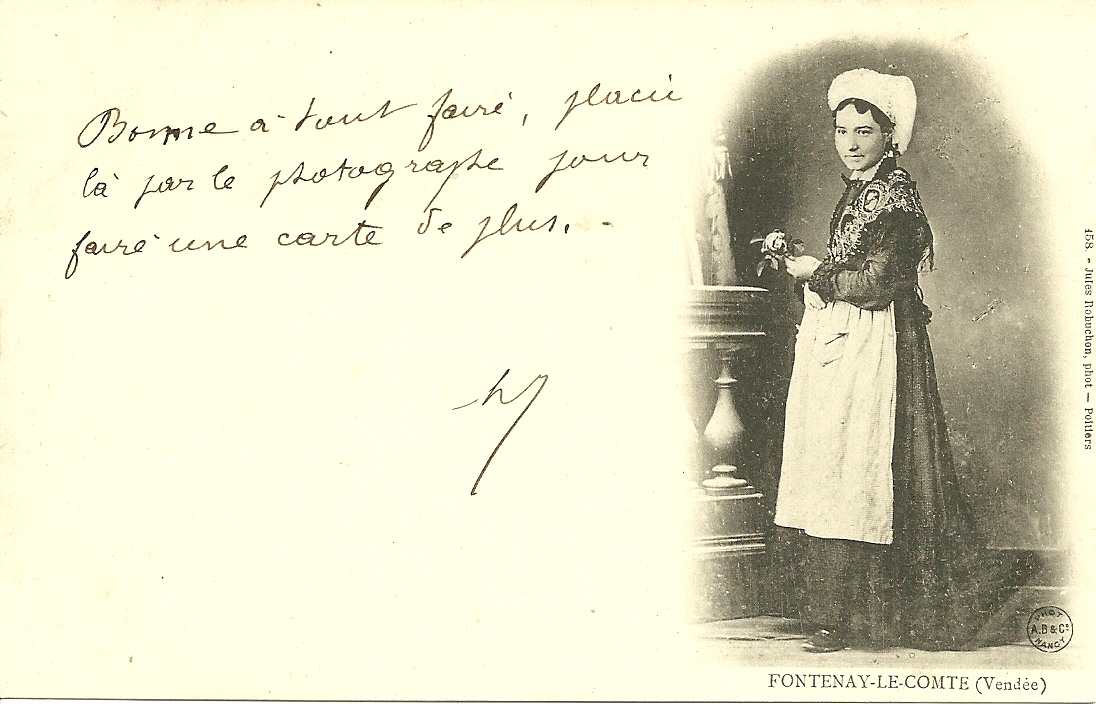 Bonne à tout faire, placée
là par le photographe pour
faire une carte de plus.
158. - Jules Robuchon, phot — Poitiers
PHOT
A.B & Cie
NANCY
FONTENAY-LE-COMTE (Vendée)